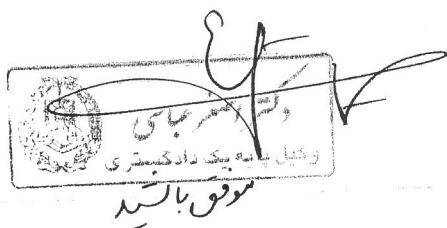 دکتر اصغر عباسی
وکیل پایه یک دادگستری
موفق باشید